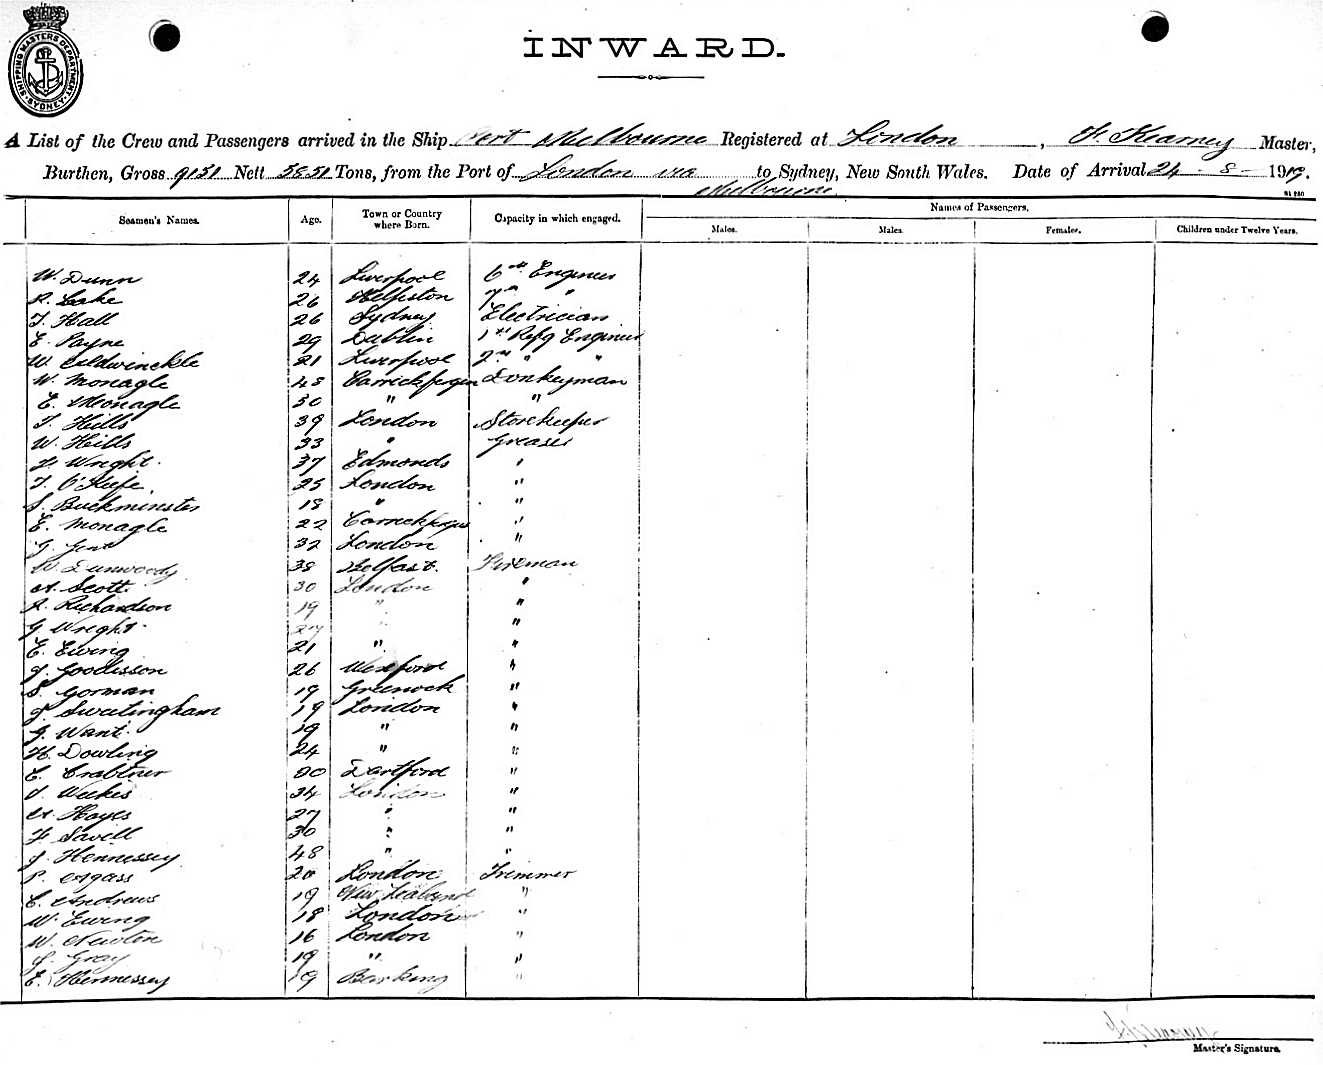 SHIPPING MASTERS DEPARTMENT · SYDNEY ·
INWARD.
A List of the Crew and Passengers arrived in the Ship Port Melbourne Registered at London, Kearney Master,
Burthen, Gross 9131 Nett Tons, from the Port of London via Melbourne to Sydney, New South Wales. Date of Arrival 24 - 8 - 1919.
Seamen's Names. Age. Town or Country where Born. Capacity in which engaged. Names of Passengers.
Males. Males. Females. Children under Twelve Years.
W. Dunn 24 Liverpool 6th Engineer
R. Lake 26 Helpston 7th "
T. Hall 26 Sydney Electrician
E. Payne 29 Dublin 1st Refg Engineer
W. Coldwinckle 21 Liverpool 2nd " "
W. Monagle 48 Carrickfergus Donkeyman
E. Monagle 30 " "
T. Hills 39 London Storekeeper
W. Hills 33 " Greaser
Wright 37 Edmonds "
T. O'Keefe 25 London "
S. Buckminster 18 " "
E. Monagle 22 Carrickfergus "
G. Gent 32 London "
W Dunwoody 38 Belfast. Fireman
A. Scott 30 London "
R. Richardson 19 " "
G Wright 27 " "
E. Ewing 21 " "
J. Goodisson 26 Wexford "
S. Gorman 19 Greenock "
J. Sweetingham 19 London "
G. Want 19 " "
H. Dowling 24 " "
C. Crabtree 20 Dartford "
Weekes 34 London "
A. Hayes 27 " "
F Savell 30 " "
J. Hennessey 48 " "
P. Agass 20 London Trimmer
C. Andrews 19 New Zealand "
W. Ewing 18 London "
W. Newton 16 London "
Gray 19 " "
E. Hennessey 19 Barking "
Master's Signature.